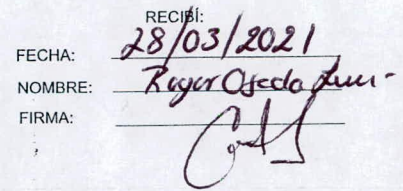 RECIBÍ:
FECHA: 28/03/2021
NOMBRE: Roger Ojeda
FIRMA: